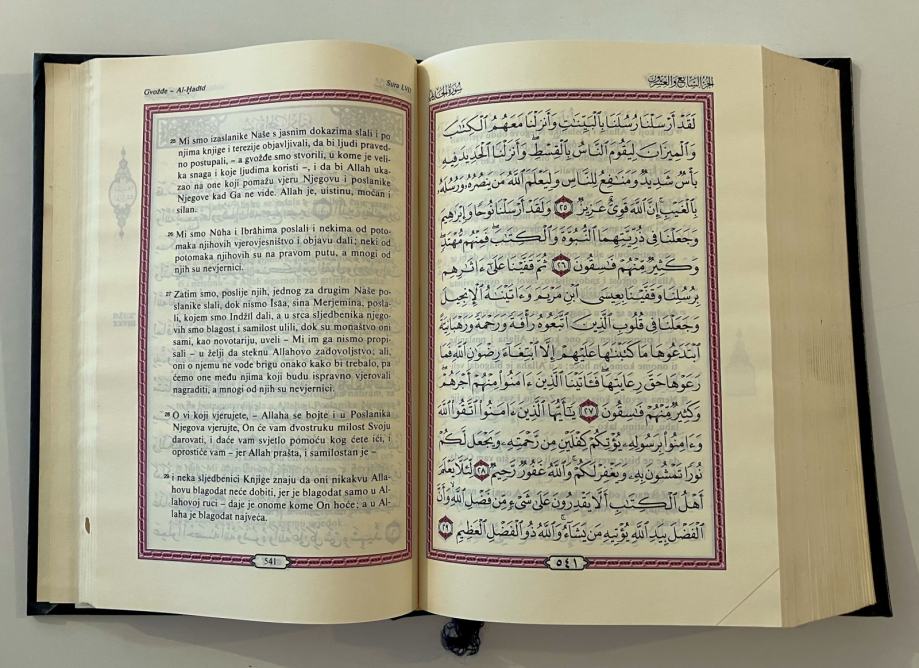 Gvožđe – Al-Ḥadīd
Sura LVII
25 Mi smo izaslanike Naše s jasnim dokazima slali i po
njima knjige i terezije objavljivali, da bi ljudi praved-
no postupali, – a gvožđe smo stvorili, u kome je veli-
ka snaga i koje ljudima koristi –, i da bi Allah uka-
zao na one koji pomažu vjeru Njegovu i poslanike
Njegove kad Ga ne vide. Allah je, uistinu, moćan i
silan.
26 Mi smo Nūha i Ibrāhima poslali i nekima od poto-
maka njihovih vjerovjesništvo i objavu dali; neki od
potomaka njihovih su na pravom putu, a mnogi od
njih su nevjernici.
27 Zatim smo, poslije njih, jednog za drugim Naše po-
slanike slali, dok nismo Īsāa, sina Merjemina, posla-
li, kojem smo Indžil dali, a u srca sljedbenika njego-
vih smo blagost i samilost ulili, dok su monaštvo oni
sami, kao novotariju, uveli – Mi im ga nismo propi-
sali – u želji da steknu Allahovo zadovoljstvo; ali,
oni o njemu ne vode brigu onako kako bi trebalo, pa
ćemo one među njima koji budu ispravno vjerovali
nagraditi, a mnogi od njih su nevjernici.
28 O vi koji vjerujete, – Allaha se bojte i u Poslanika
Njegova vjerujte, On će vam dvostruku milost Svoju
darovati, i daće vam svjetlo pomoću kog ćete ići, i
oprostiće vam – jer Allah prašta, i samilostan je –
29 i neka sljedbenici Knjige znaju da oni nikakvu Alla-
hovu blagodat neće dobiti, jer je blagodat samo u Al-
lahovoj ruci – daje je onome kome On hoće; a u Al-
laha je blagodat najveća.
541
الجزء السابع والعشرون
سورة الحديد
لَقَدْ أَرْسَلْنَا رُسُلَنَا بِالْبَيِّنَٰتِ وَأَنزَلْنَا مَعَهُمُ الْكِتَٰبَ
وَالْمِيزَانَ لِيَقُومَ النَّاسُ بِالْقِسْطِ ۖ وَأَنزَلْنَا الْحَدِيدَ فِيهِ
بَأْسٌ شَدِيدٌ وَمَنَٰفِعُ لِلنَّاسِ وَلِيَعْلَمَ اللَّهُ مَن يَنصُرُهُۥ وَرُسُلَهُۥ
بِالْغَيْبِ ۚ إِنَّ اللَّهَ قَوِىٌّ عَزِيزٌ ٢٥ وَلَقَدْ أَرْسَلْنَا نُوحًا وَإِبْرَٰهِيمَ
وَجَعَلْنَا فِى ذُرِّيَّتِهِمَا النُّبُوَّةَ وَالْكِتَٰبَ ۖ فَمِنْهُم مُّهْتَدٍ ۖ
وَكَثِيرٌ مِّنْهُمْ فَٰسِقُونَ ٢٦ ثُمَّ قَفَّيْنَا عَلَىٰٓ ءَاثَٰرِهِم
بِرُسُلِنَا وَقَفَّيْنَا بِعِيسَى ابْنِ مَرْيَمَ وَءَاتَيْنَٰهُ الْإِنجِيلَ
وَجَعَلْنَا فِى قُلُوبِ الَّذِينَ اتَّبَعُوهُ رَأْفَةً وَرَحْمَةً وَرَهْبَانِيَّةً
ابْتَدَعُوهَا مَا كَتَبْنَٰهَا عَلَيْهِمْ إِلَّا ابْتِغَآءَ رِضْوَٰنِ اللَّهِ فَمَا
رَعَوْهَا حَقَّ رِعَايَتِهَا ۖ فَـَٔاتَيْنَا الَّذِينَ ءَامَنُوا مِنْهُمْ أَجْرَهُمْ ۖ
وَكَثِيرٌ مِّنْهُمْ فَٰسِقُونَ ٢٧ يَٰٓأَيُّهَا الَّذِينَ ءَامَنُوا اتَّقُوا اللَّهَ
وَءَامِنُوا بِرَسُولِهِۦ يُؤْتِكُمْ كِفْلَيْنِ مِن رَّحْمَتِهِۦ وَيَجْعَل لَّكُمْ
نُورًا تَمْشُونَ بِهِۦ وَيَغْفِرْ لَكُمْ ۚ وَاللَّهُ غَفُورٌ رَّحِيمٌ ٢٨ لِّئَلَّا يَعْلَمَ
أَهْلُ الْكِتَٰبِ أَلَّا يَقْدِرُونَ عَلَىٰ شَىْءٍ مِّن فَضْلِ اللَّهِ ۙ وَأَنَّ
الْفَضْلَ بِيَدِ اللَّهِ يُؤْتِيهِ مَن يَشَآءُ ۚ وَاللَّهُ ذُو الْفَضْلِ الْعَظِيمِ ٢٩
٥٤١